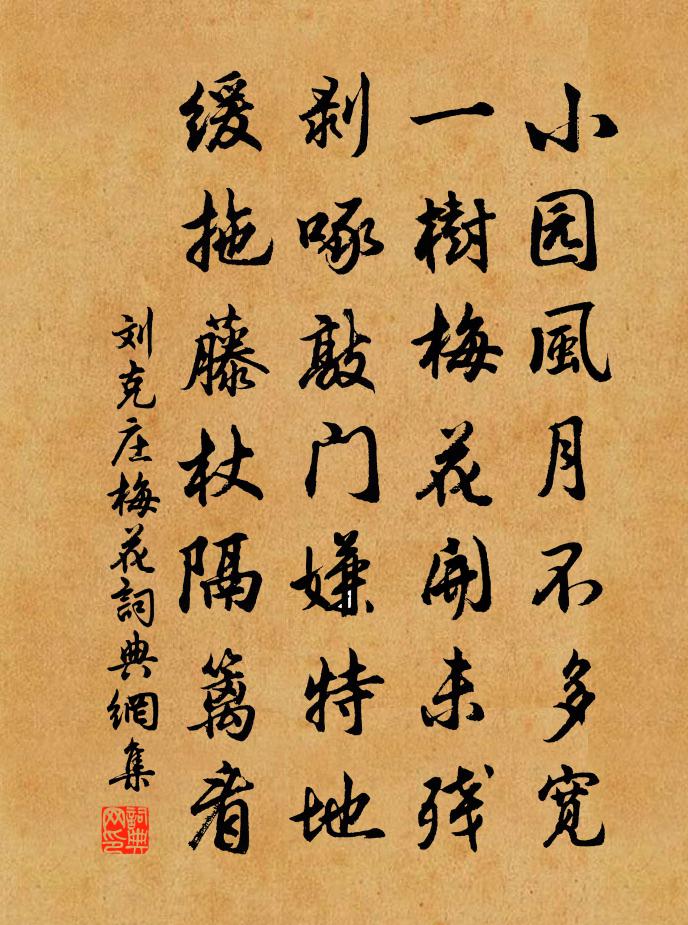 小园風月不多寬
一樹梅花開未残
剥啄敲门嫌特地
缓拖藤杖隔篱看
刘克庄梅花詞典網集
詞典网印